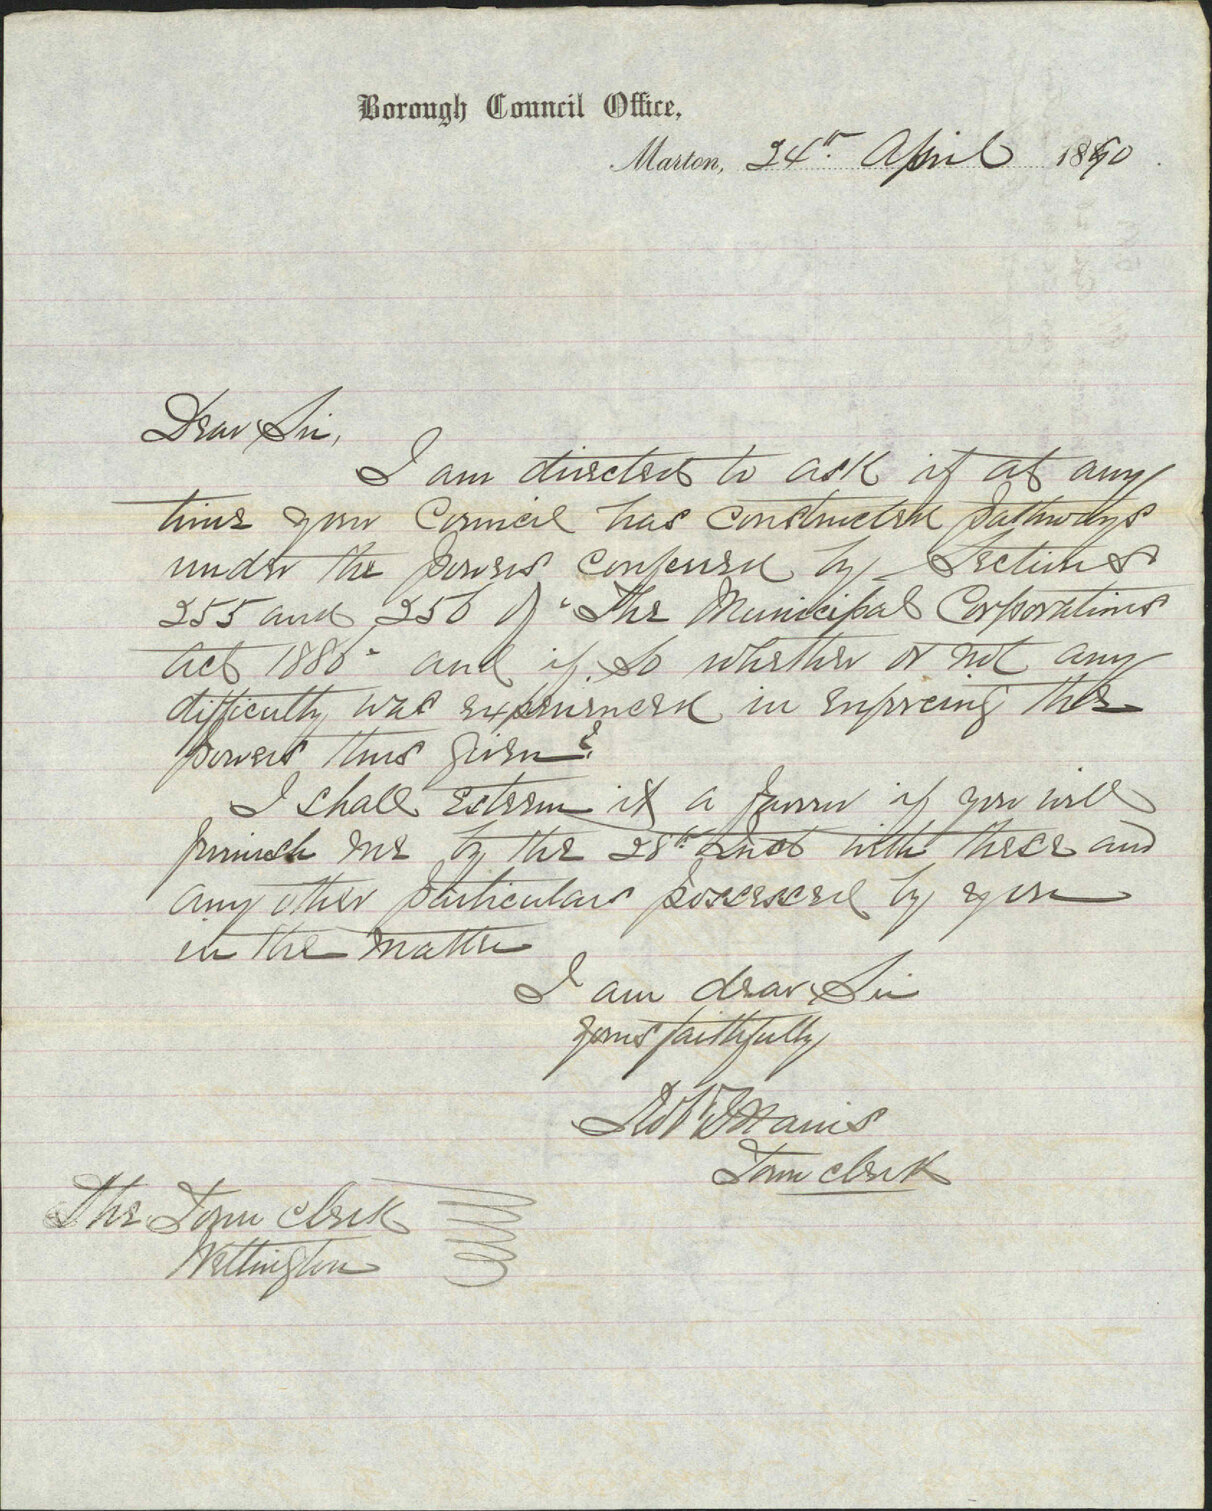 Borough Council Office,
Marton, 24th April 1890
Dear Sir,
I am directed to ask if at any
time your Council has constructed pathways
under the powers conferred by Sections
255 and 256 of "The Municipal Corporations
Act 1886" and if so whether or not any
difficulty was experienced in enforcing the
powers thus given?
I shall esteem it a favor if you will
furnish me by the 28th Inst with these and
any other particulars possessed by you
in the matter
I am dear Sir
yours faithfully
Town Clerk
The Town Clerk
Wellington